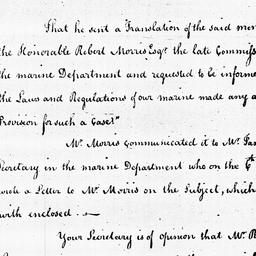 That he sent a Translation of the said mem
the Honorable Robert Morris Esqr. the late Commiss
the marine Department and requested to be informe
the Laws and Regulations of our marine made any a
Provision for such a Case?"
Mr. Morris communicated it to Mr. Fan
Secretary in the marine Department who on the 6th
wrote a Letter to Mr. Morris on the Subject, which
with enclosed. —
Your Secretary is of opinion that Mr. R